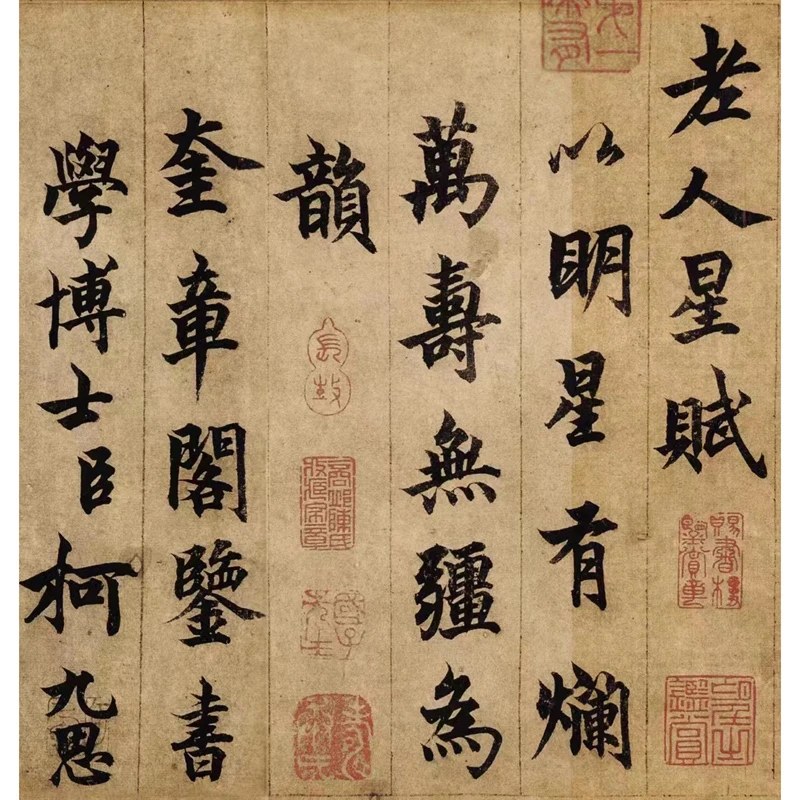 老人星賦
以明星有爛
萬壽無疆為
韻
奎章閣鑒書
學博士臣柯九思
賜書樓
鑒賞章